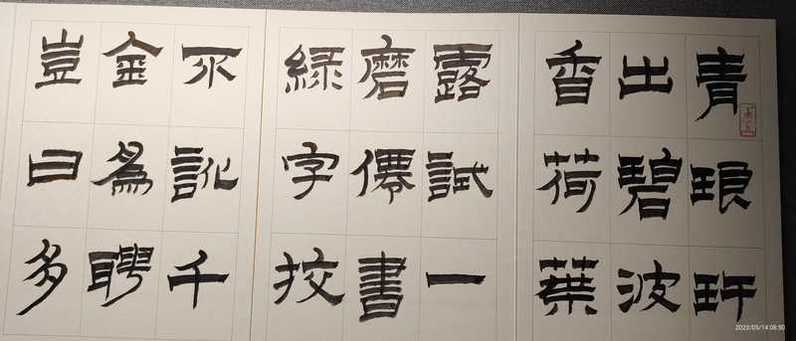 青琅玕
出碧波
香荷葉
露試一
磨僊書
緑字挍
不訛千
金爲聘
豈曰多
2023/05/14 08:50